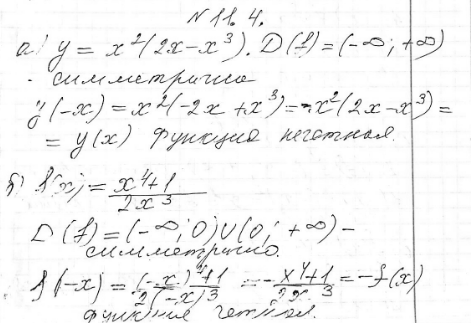 N 11. 4.
а) y = x²(2x-x³). D(f)=(-∞; +∞)
- симметрично
y(-x) = x²(-2x+x³)=-x²(2x-x³)=
= y(x) функция нечетная.
б) f(x) = (x⁴+1)/(2x³)
D(f) = (-∞; 0)∪(0; +∞) -
симметрично.
f(-x) = ((-x)⁴+1)/(2(-x)³) = -(x⁴+1)/(2x³) = -f(x)
функция четная.